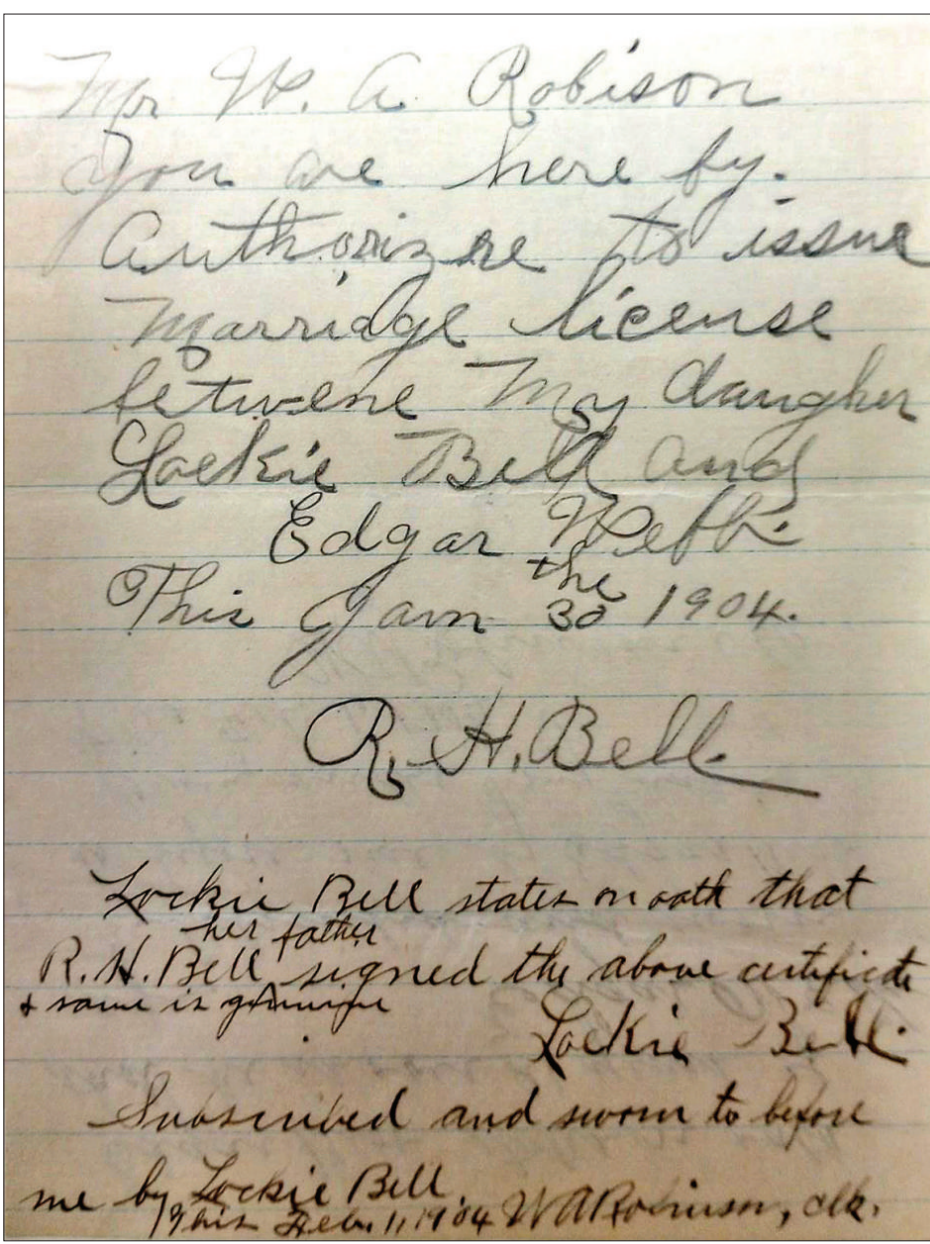 Mr W. A Robison
You are here by.
Authorizee to issue
Marridge license
betwene My daugher
Lockie Bell and
Edgar Webb.
This Jam the 30 1904.
R. H. Bell
Lockie Bell states on oath that
her father
R. H. Bell signed the above certificate
& same is genuine
Lockie Bell.
Subscribed and sworn to before
me by Lockie Bell.
This Feb. 1, 1904 W A Robinson, clk.